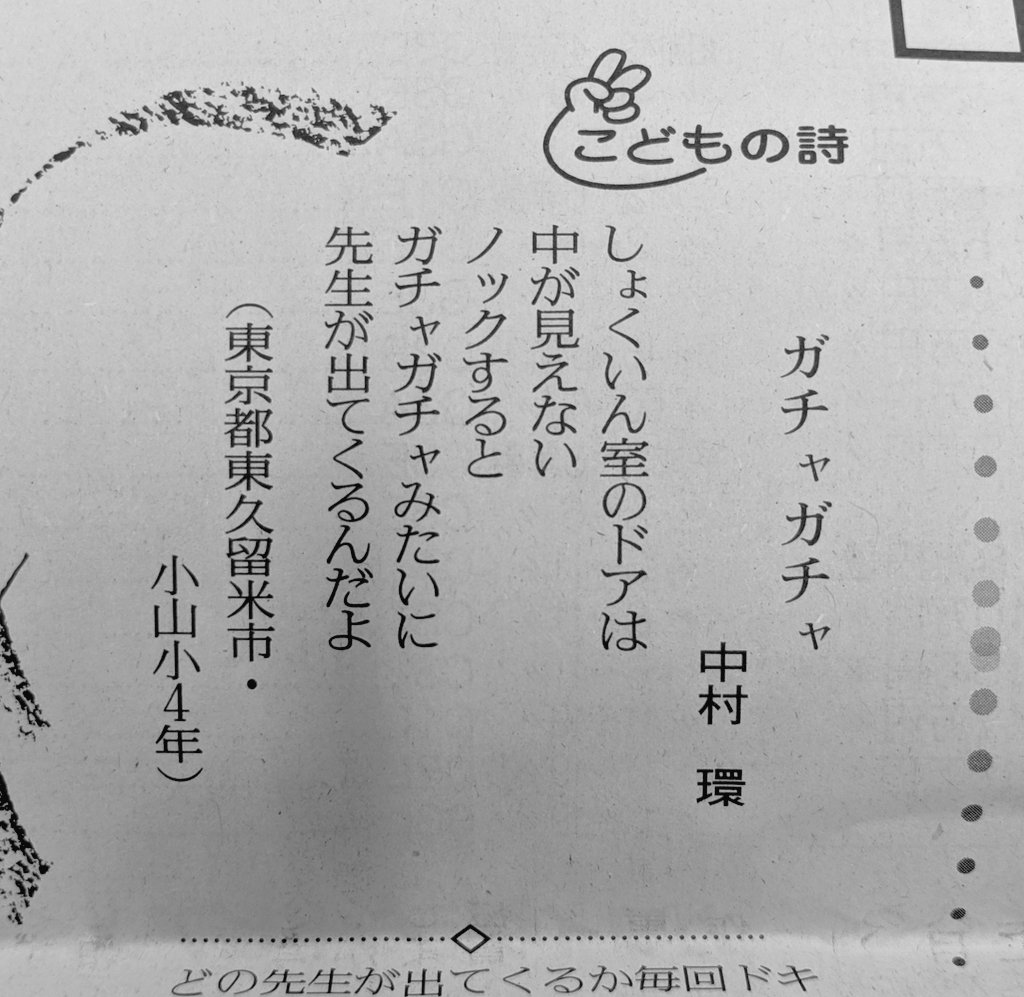 こどもの詩
ガチャガチャ
中村　環
しょくいん室のドアは
中が見えない
ノックすると
ガチャガチャみたいに
先生が出てくるんだよ
（東京都東久留米市・
小山小４年）
どの先生が出てくるか毎回ドキ